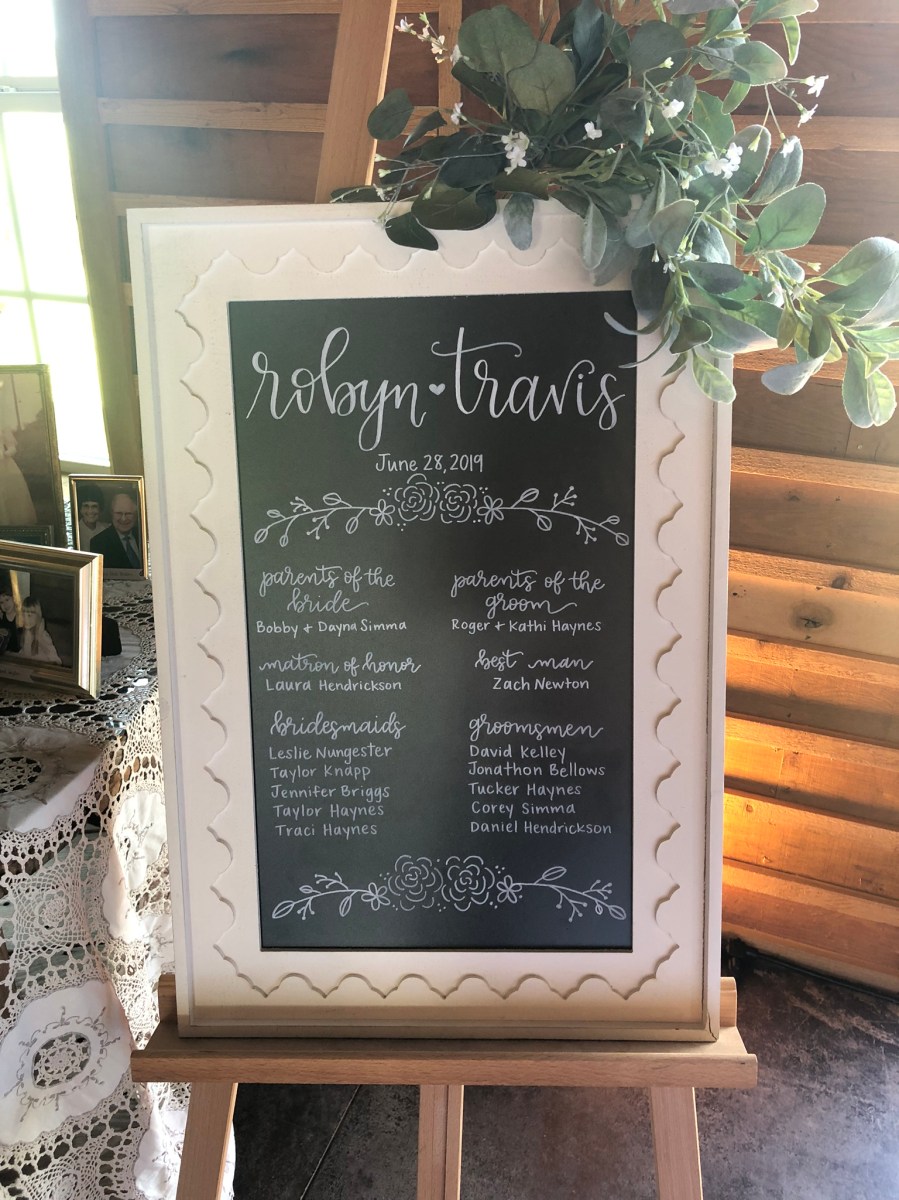 robyn ♥ travis
June 28, 2019
parents of the
bride
Bobby + Dayna Simma
parents of the
groom
Roger + Kathi Haynes
matron of honor
Laura Hendrickson
best man
Zach Newton
bridesmaids
Leslie Nungester
Taylor Knapp
Jennifer Briggs
Taylor Haynes
Traci Haynes
groomsmen
David Kelley
Jonathon Bellows
Tucker Haynes
Corey Simma
Daniel Hendrickson